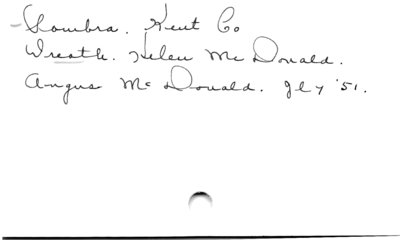 Sombra. Kent Co
Wreath. Helen McDonald.
Angus McDonald. Jly '51.